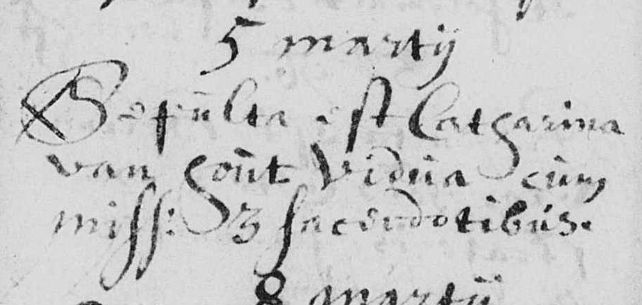 5 martij
Sepūlta est Catharina
van hoūt Vidūa cūm
miss: 3 sacerdotibūs.
8 martij